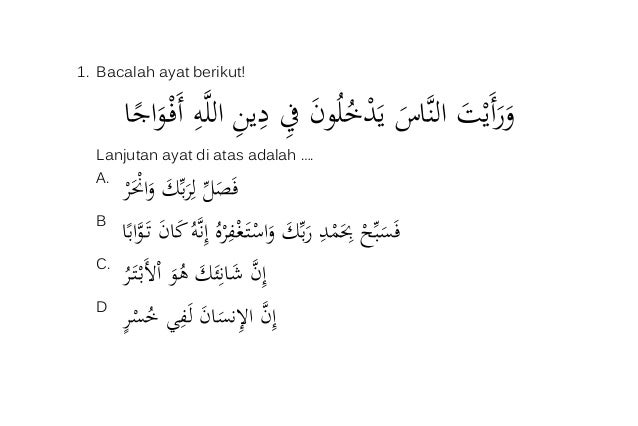 1. Bacalah ayat berikut!
وَرَأَيْتَ النَّاسَ يَدْخُلُونَ فِي دِينِ اللَّهِ أَفْوَاجًا
Lanjutan ayat di atas adalah ....
A. فَصَلِّ لِرَبِّكَ وَانْحَرْ
B فَسَبِّحْ بِحَمْدِ رَبِّكَ وَاسْتَغْفِرْهُ إِنَّهُ كَانَ تَوَّابًا
C. إِنَّ شَانِئَكَ هُوَ اْلأَبْتَرُ
D إِنَّ الإِنسَانَ لَفِي خُسْرٍ